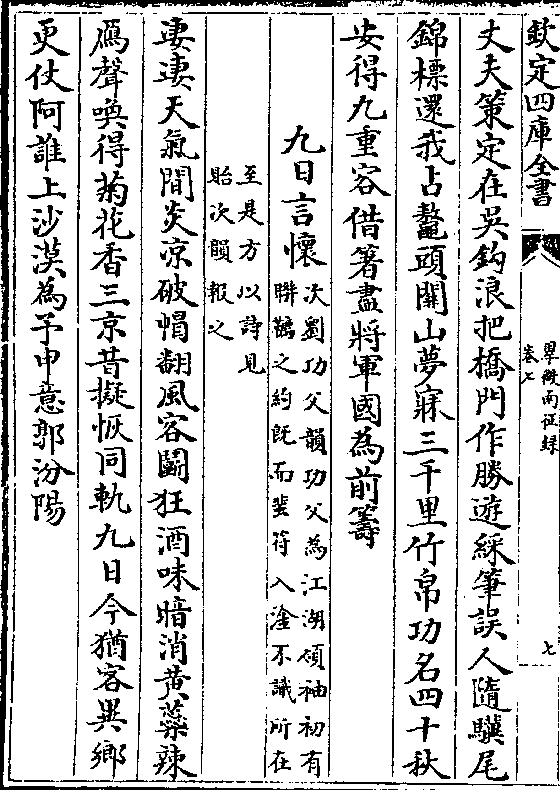 欽定四庫全書
翠微南征録
卷七
七
丈夫策定在吳鈎浪把橋門作勝遊綵筆誤人隨驥尾
錦標還我占鼇頭關山夢寐三千里竹帛功名四十秋
安得九重容借箸盡將軍國為前籌
九日言懷
次劉功父韻功父為江湖領袖初有
聯鷁之約既而斐符入淦不識所在
至是方以詩見
貽次韻報之
凄凄天氣間炎凉破㡌翻風客鬭狂酒味暗消黄蘂辣
鴈聲喚得菊花香三京昔擬恢同軌九日今猶客異鄉
更仗阿誰上沙漠為予申意郭汾陽